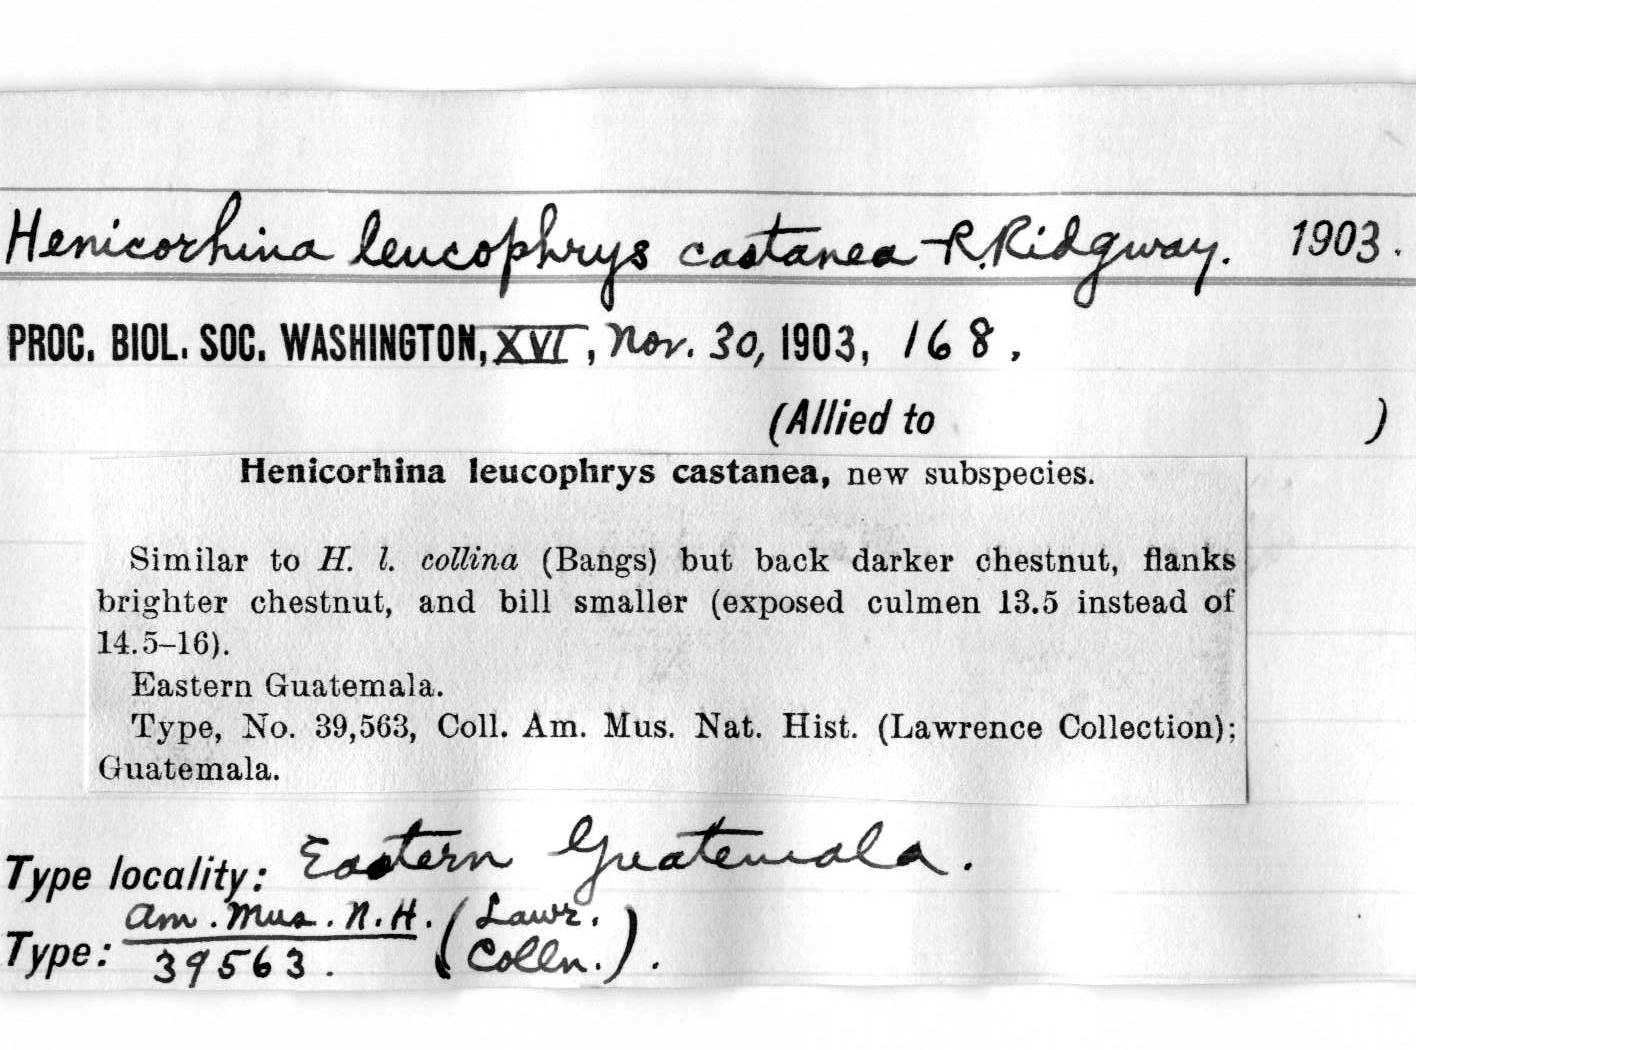 Henicorhina leucophrys castanea R. Ridgway. 1903.
PROC. BIOL. SOC. WASHINGTON, XVI, Nov. 30, 1903, 168.
(Allied to )
Henicorhina leucophrys castanea, new subspecies.
Similar to H. l. collina (Bangs) but back darker chestnut, flanks
brighter chestnut, and bill smaller (exposed culmen 13.5 instead of
14.5–16).
Eastern Guatemala.
Type, No. 39,563, Coll. Am. Mus. Nat. Hist. (Lawrence Collection);
Guatemala.
Type locality: Eastern Guatemala.
Type: Am. Mus. N.H. (Lawr.
39563. Colln.).